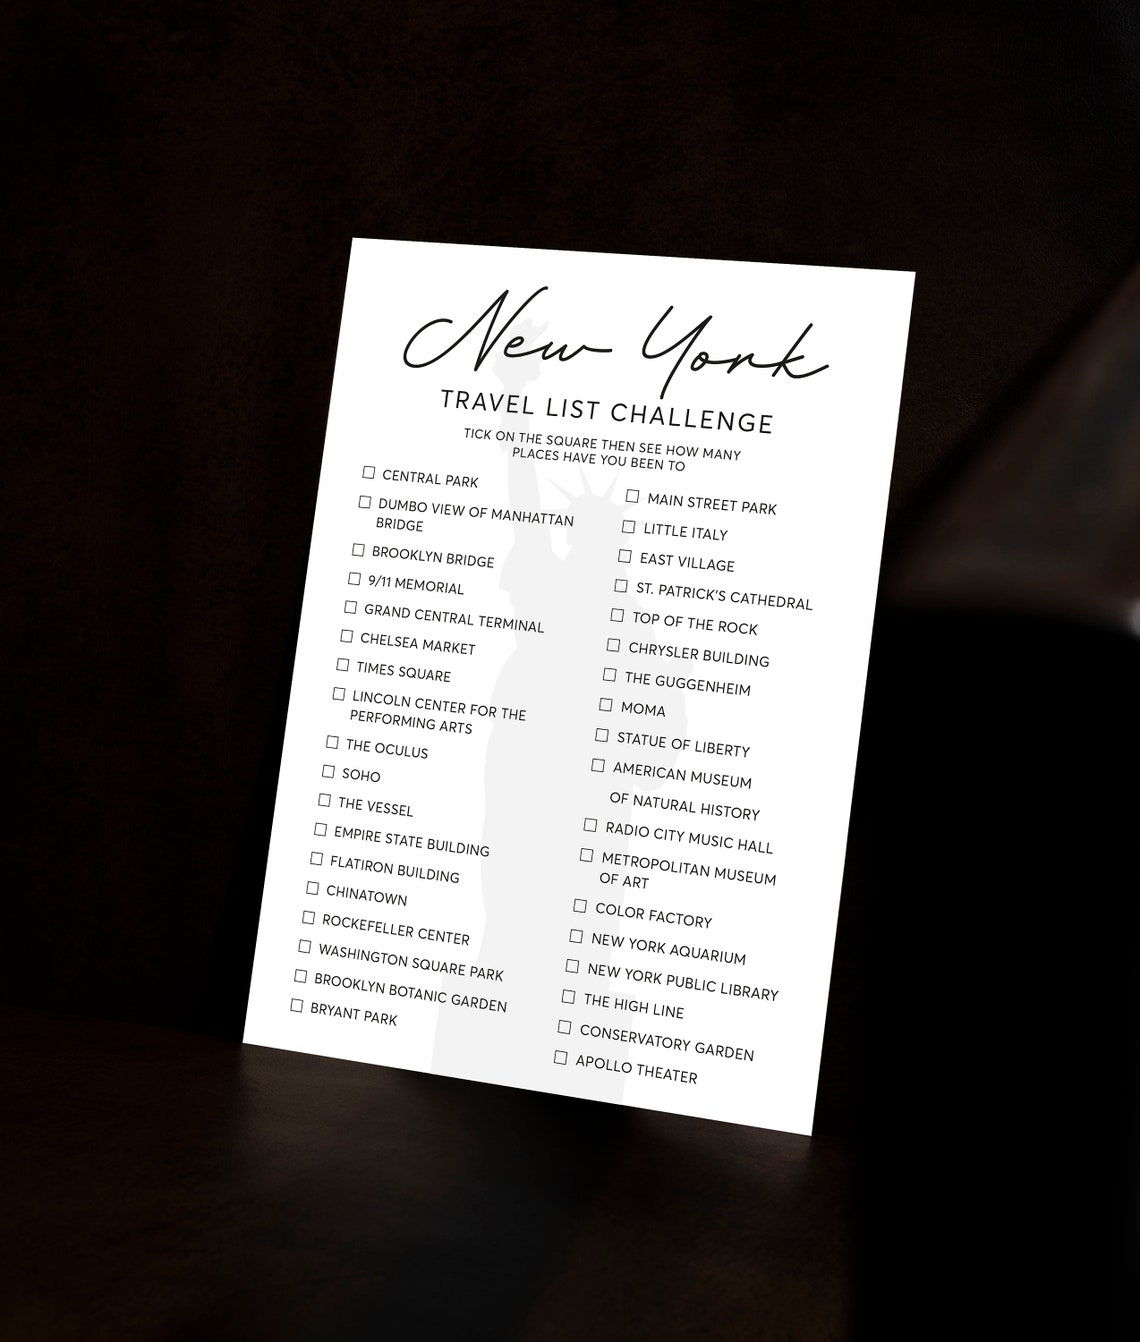 New York
TRAVEL LIST CHALLENGE
TICK ON THE SQUARE THEN SEE HOW MANY
PLACES HAVE YOU BEEN TO
CENTRAL PARK
DUMBO VIEW OF MANHATTAN
BRIDGE
BROOKLYN BRIDGE
9/11 MEMORIAL
GRAND CENTRAL TERMINAL
CHELSEA MARKET
TIMES SQUARE
LINCOLN CENTER FOR THE
PERFORMING ARTS
THE OCULUS
SOHO
THE VESSEL
EMPIRE STATE BUILDING
FLATIRON BUILDING
CHINATOWN
ROCKEFELLER CENTER
WASHINGTON SQUARE PARK
BROOKLYN BOTANIC GARDEN
BRYANT PARK
MAIN STREET PARK
LITTLE ITALY
EAST VILLAGE
ST. PATRICK'S CATHEDRAL
TOP OF THE ROCK
CHRYSLER BUILDING
THE GUGGENHEIM
MOMA
STATUE OF LIBERTY
AMERICAN MUSEUM
OF NATURAL HISTORY
RADIO CITY MUSIC HALL
METROPOLITAN MUSEUM
OF ART
COLOR FACTORY
NEW YORK AQUARIUM
NEW YORK PUBLIC LIBRARY
THE HIGH LINE
CONSERVATORY GARDEN
APOLLO THEATER